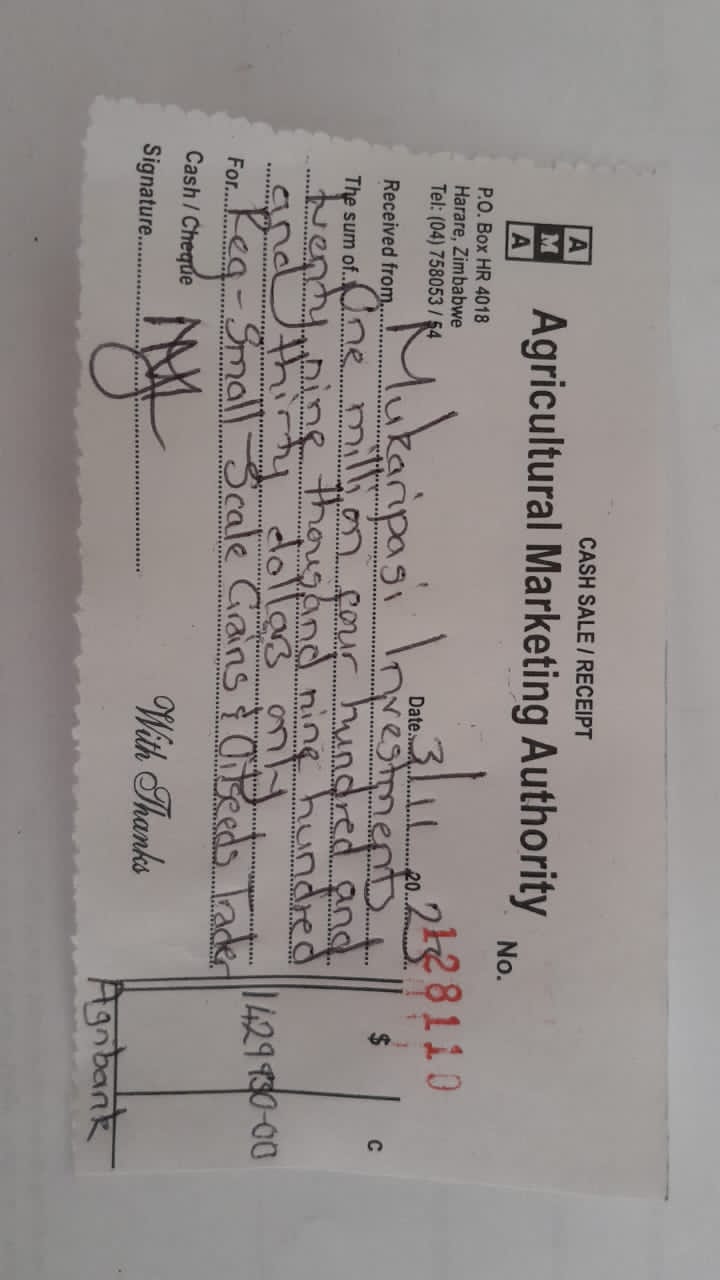 CASH SALE / RECEIPT
A M A
Agricultural Marketing Authority
No. 128110
P.O. Box HR 4018
Harare, Zimbabwe
Tel: (04) 758053 / 54
Date 3/11 20 23
Received from Mukaripasi Investments
The sum of One million four hundred and
twenty nine thousand nine hundred
and thirty dollars only
For Reg - Small Scale Grains & Oilseeds Trader
$ c
1429930-00
Cash / Cheque
Signature
With Thanks
Agribank